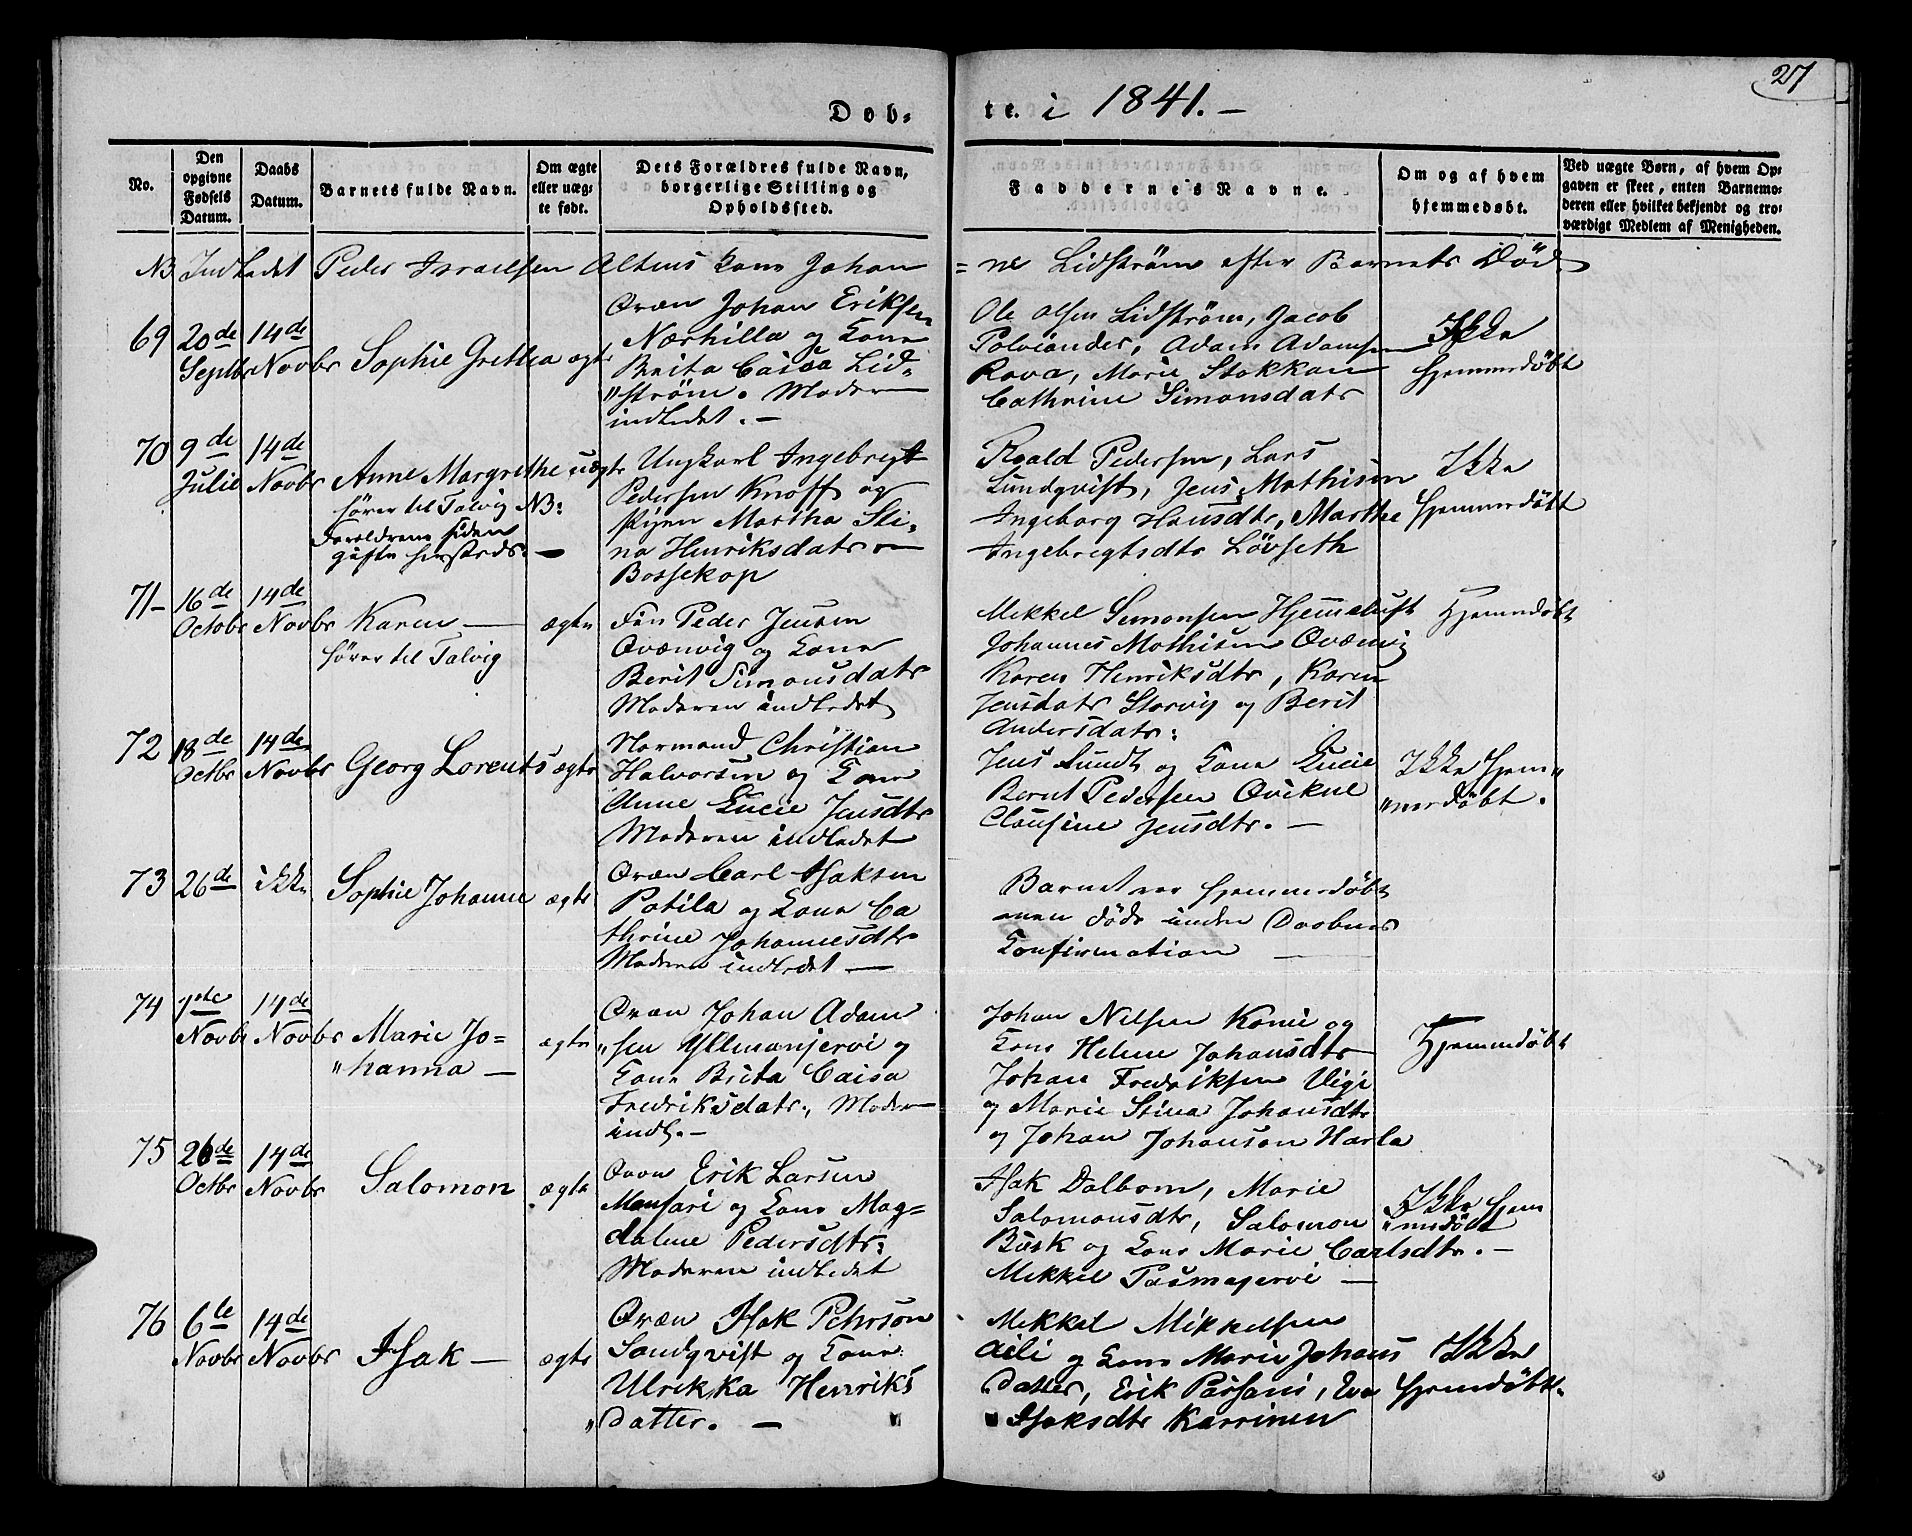 27
Døb-
te. i 1841. -
No.
Den opgivne Fødsels Datum.
Daabs Datum.
Barnets fulde Navn.
Om ægte eller uægte født.
Dets Forældres fulde Navn, borgerlige Stilling og Opholdssted.
Faddernes Navne.
Om og af hvem hjemmedøbt.
Ved uægte Børn, af hvem Opgaven er skeet, enten Barnemoderen eller hvilket bekjendt og troværdigt Medlem af Menigheden.
NB Indledet Peder Israelsen Altens Kone Johan
=ne Lidstrøm efter Barnets Død
69
20de Septbr
14de Novbr
Sophie Grethea
ægte
Qvæn Johan Eriksen
Narhilla og Kone
Brita Caisa Lid-
"strøm. Moderen
indledet. -
Ole Olsen Lidstrøm, Jacob
Polviander, Adam Adamsen
Rova, Marie Stokkan
Cathrine Simonsdatr
Ikke
hjemmedøbt
70
9de Julie
14de Novbr
Anne Margrethe
hører til Talvig NB:
Forældrene siden
gifte
uægte
Ungkarl Ingebregt
Pedersen Knoff og
Pigen Martha Sti-
na Henriksdatr
Bossekop
Roald Pedersen, Lars
Lundqvist, Jens Mathisen
Ingeborg Hansdtr, Marthe
Ingebregtsdtr Løvseth
Ikke
hjemmedøbt
71-
16de Octobr
14de Novbr
Karen -
hører til Talvig
ægte
Fin Peder Jensen
Qvænvig og Kone
Berit Simonsdatr
Moderen indledet
Mekkel Simonsen Hjemeluft
Johannes Mathisen Qvænvig
Karen Henriksdtr, Karen
Jensdatr Storvig og Berit
Andersdatr:
Hjemmedøbt
72
18de Octbr
14de Novbr
Georg Lorents
ægte
Normand Christian
Halvorsen og Kone
Anne Lucie Jensdtr
Moderen indledet
Jens Lundt og Kone Lucie
Bernt Pedersen Qvikne
Clausine Jensdtr. -
Ikke hjem"
"medøbt.
73
26de
ikke
Sophie Johanne
ægte
Qvæn Carl Isaksen
Potila og Kone Ca
thrine Johannesdtr
Moderen indledet -
Barnet var hjemmedøbt
men døde inden Daabens
Confirmation -
74
1ste Novbr
14de Novbr
Marie Jo=
"hanna -
ægte
Qvæn Johan Adam
"sen Yllmanjervi og
Kone Brita Caisa
Fredriksdatr., Moderen
indl. -
Johan Nilsen Konie og
Kone Helene Johansdtr
Johan Fredriksen Vigi
og Marie Stina Johansdtr
og Johan Johanson Harla
Hjemmedøbt
75
26de Octbr
14de Novbr
Salomon
ægte
Qvæn Erik Larsen
Monsari og Kone Mag=
dalene Pedersdtr:
Moderen indledet
Isak Dalbom, Marie
Salomonsdtr, Salomon
Busk og Kone Marie Carlsdtr. -
Mekkel Pasmajervi -
Ikke hjem
"medøbt
76
6te Novbr
14de Novbr
Isak -
ægte
Qvæn Isak Pehrson
Sandqvist og Kone
Ulrikka Henriks
"datter. -
Mekkel Mikkelsen
Aili og Kone Marie Johans
datter, Erik Parsani, Eva
Isaksdtr Karrinen
Ikke
hjemmedøbt